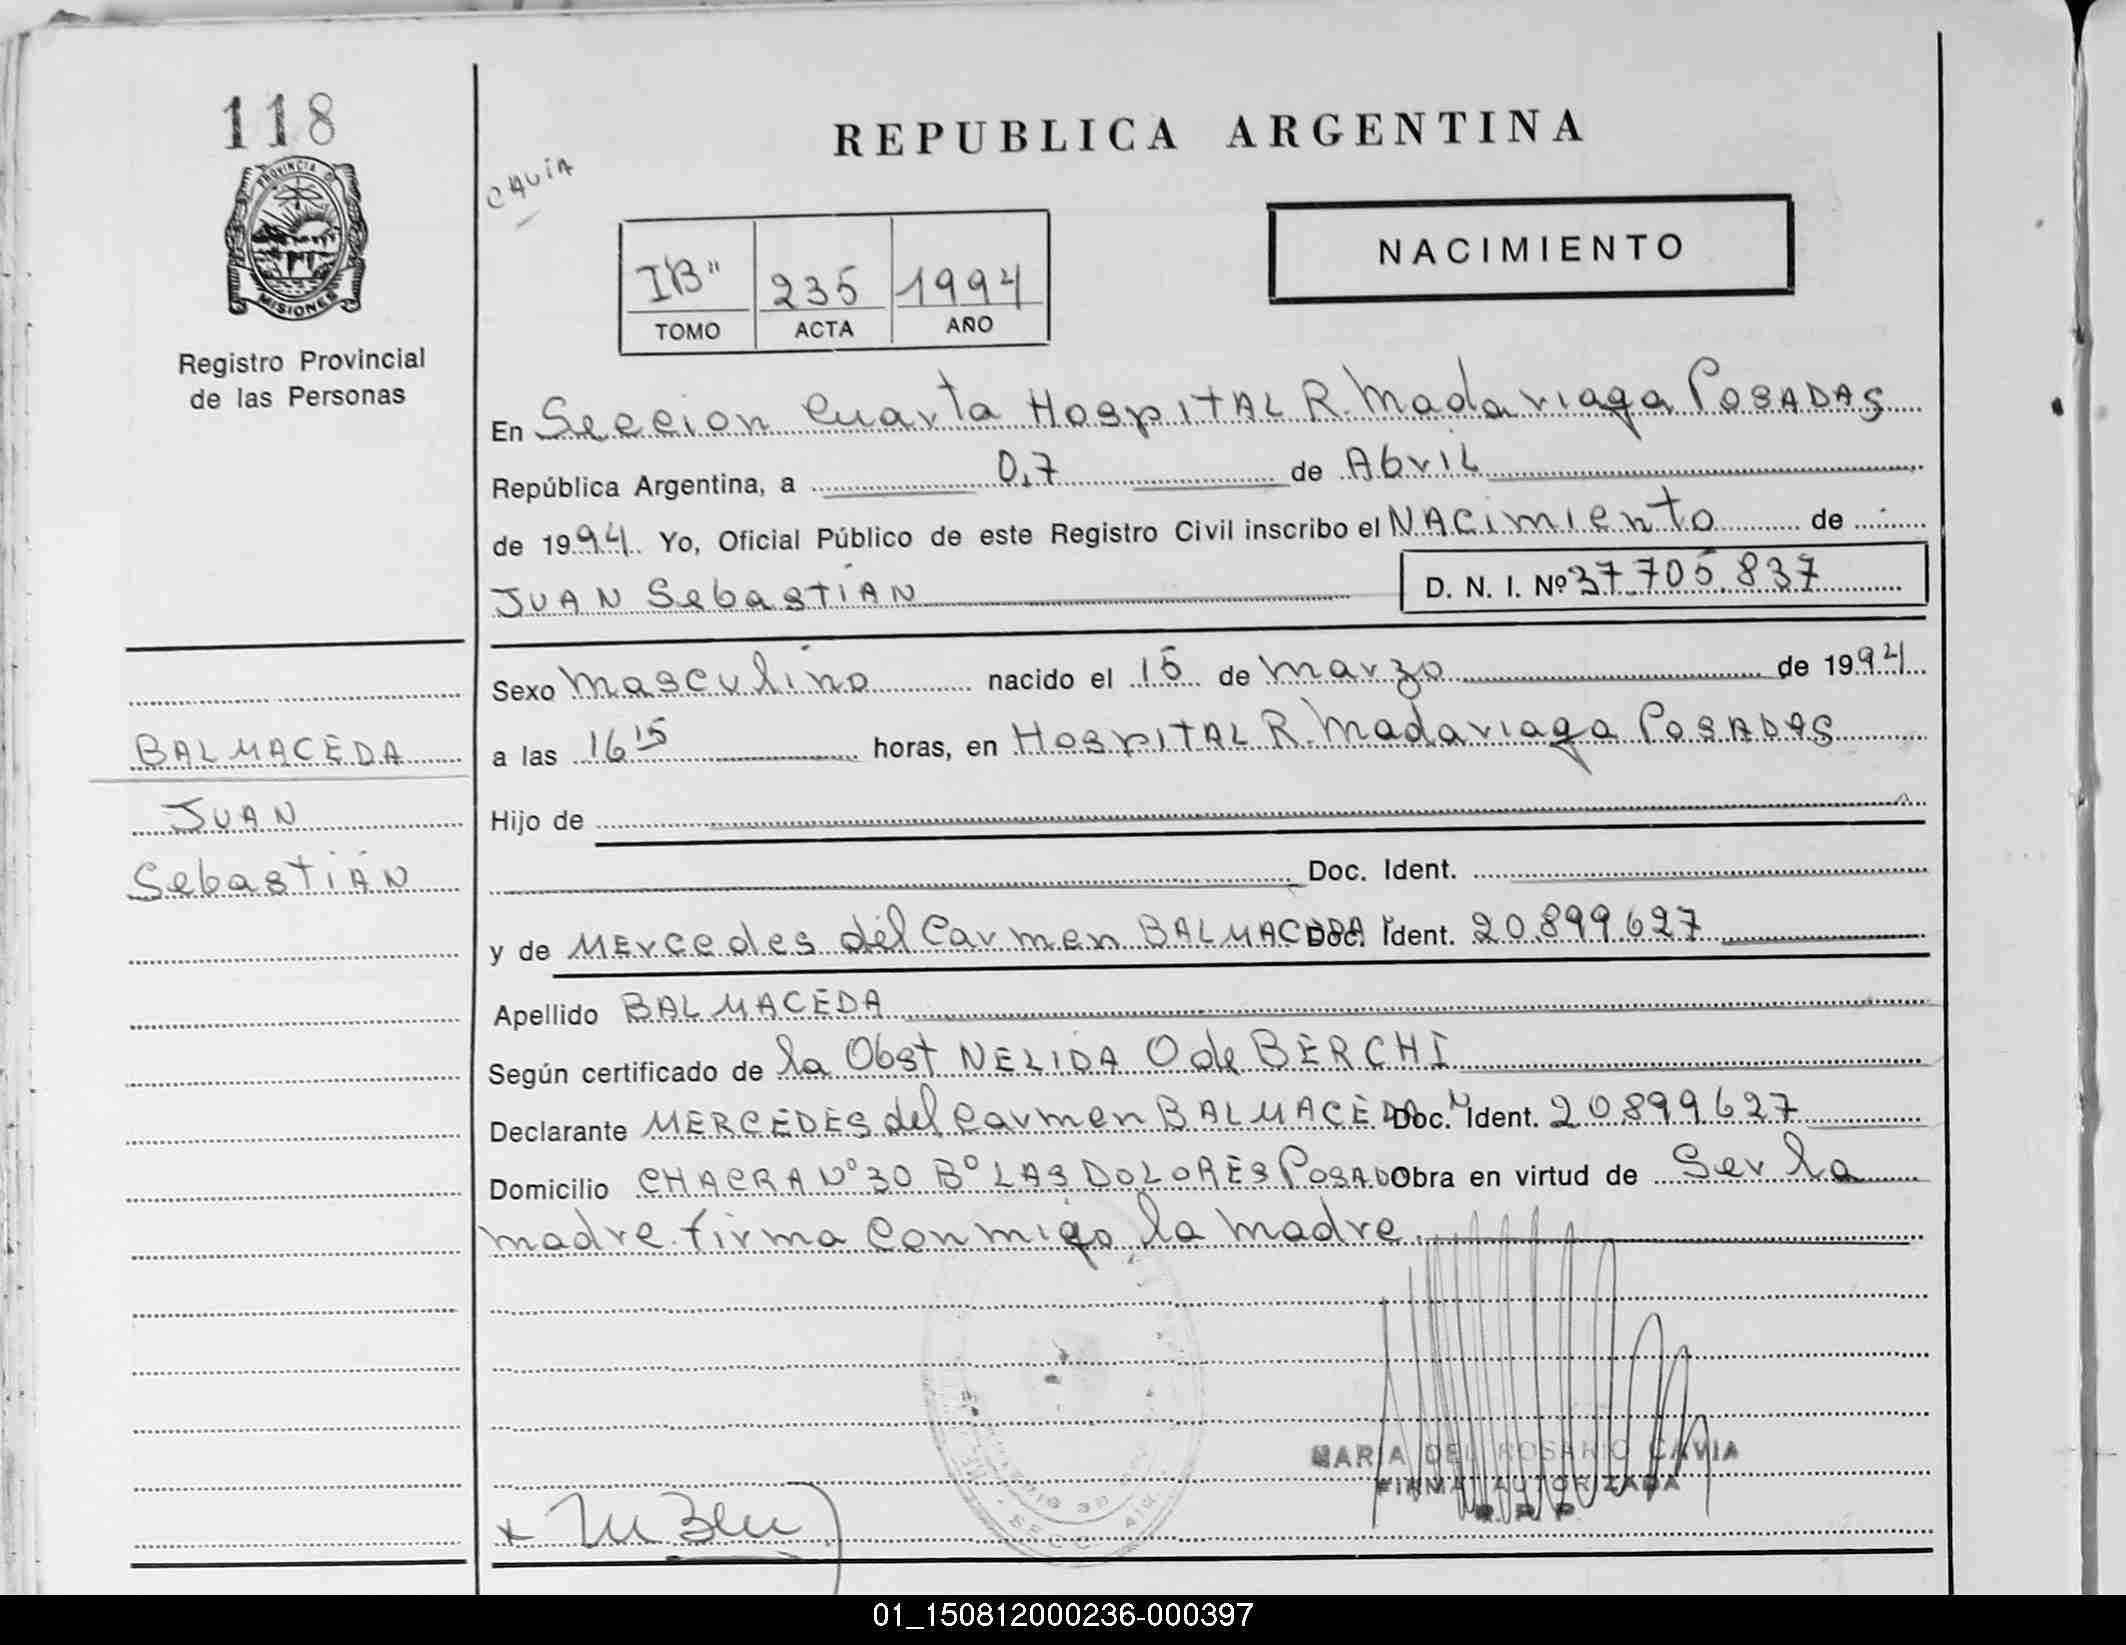 118
PROVINCIA D
MISIONES
Registro Provincial
de las Personas
CAVIA
REPUBLICA ARGENTINA
NACIMIENTO
I"B" 235 1994
TOMO ACTA AÑO
En Seccion Cuarta Hospital R. Madariaga Posadas
República Argentina, a 0,7 de Abril
de 1994. Yo, Oficial Público de este Registro Civil inscribo el NACimiento de
JUAN SebastiAN D. N. I. Nº 37.705.837
Sexo masculino nacido el 15 de marzo de 1994
a las 16 15 horas, en HospITAL R. Madariaga PosADAS
Hijo de
Doc. Ident.
y de Mercedes del Carmen BALMACEDA Doc. Ident. 20.899.627
Apellido BALMACEDA
Según certificado de la Obst NELIDA O de BERCHI
Declarante MERCEDES del Carmen BALMACEDA Doc. Ident. 20.899.627
Domicilio CHACRA Nº 30 Bº LAS DOLORES POSAD Obra en virtud de Ser la
madre. firma conmigo la madre.
BALMACEDA
JUAN
SebastiÁN
MARIA DEL ROSARIO CAVIA
FIRMA AUTORIZADA
R. P. P.
01_150812000236-000397